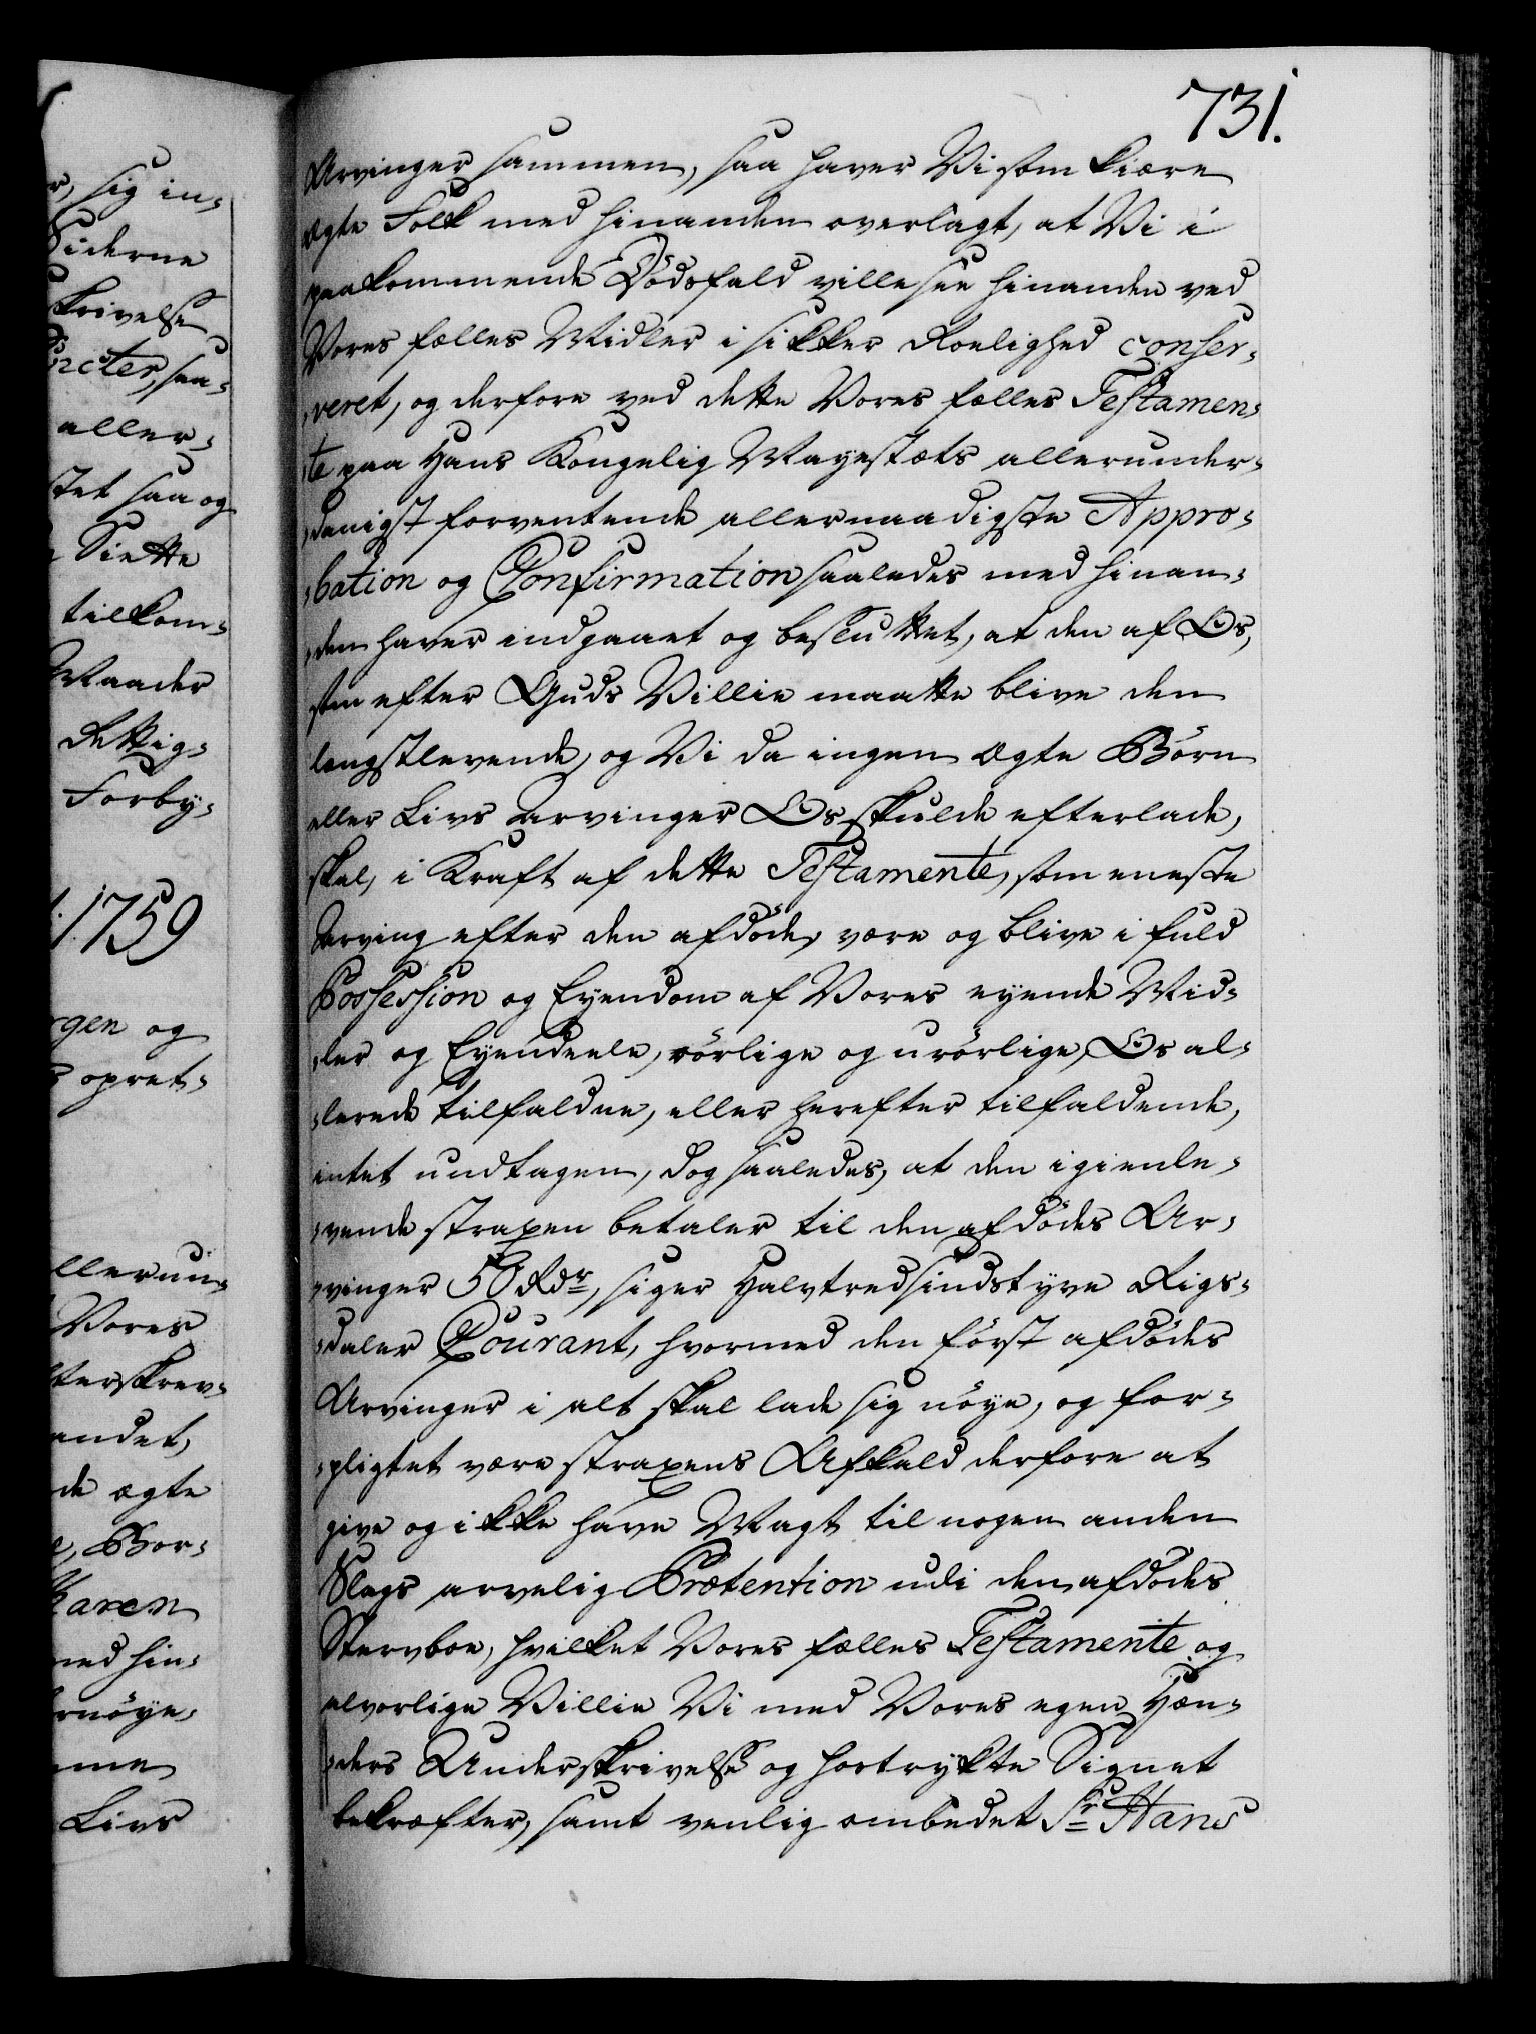 731.
Arvinger sammen, saa haver Vi som kiære
ægte Folk med hinanden overlagt, at Vi i
paakommende Dödsfald ville see hinanden ved
Vores fælles Midler i sikker Roelighed conser-
-veret, og derfore ved dette Vores fælles Testamen-
-te paa Hans Kongelig Mayestæts allerunder-
-danigst forventende allernaadigste Appro-
-bation og Confirmation saaledes med hinan-
-den haver indgaaet og besluttet, at den af Os,
som efter Guds Villie maatte blive den
længstlevende, og Vi da ingen ægte Börn
eller Livs Arvinger Os skulde efterlade,
skal, i Kraft af dette Testamente, som eneste
Arving efter den afdöde, være og blive i fuld
Possession og Eyendom af Vores eyende Mid-
-ler og Eyendeele, rörlige og urörlige, Os al-
-lerede tilfaldne, eller herefter tilfaldende,
intet undtagen, dog saaledes, at den igienle-
-vende straxen betaler til den afdödes Ar-
-vinger 50 Rdr, siger Halvtredsindstyve Rigs-
-daler Courant, hvormed den först afdödes
Arvinger i alt skal lade sig nöye, og for-
-pligtet være straxens Afkald derfore at
give og ikke have Magt til nogen anden
Slags arvelig Prætention udi den afdödes
Stervboe, hvilket Vores fælles Testamente og
alvorlige Villie Vi med Vores egen Hæn-
-ders Underskrivelse og hostrykte Signet
bekræfter, samt venlig ombedet Sr Hans
r, sig in-
Siderne
skrivelse
ncter, saa-
aller-
stet saa og
Siette
tilkom-
Maader
Rettig-
Forby-
1759
rgen og
opret-
llerun-
Vores
terskrev-
andet,
de ægte
e, Bor-
Karen
med hin-
rnöye,
mme
Livs